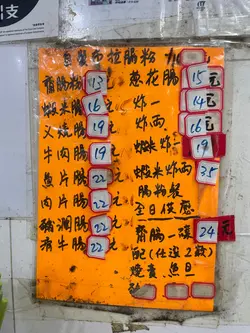 布拉腸粉
齋腸粉 13元
蝦米腸 16元
叉燒腸 19元
牛肉腸 19元
魚片腸 22元
肉片腸 22元
豬潤腸 22元
滑牛腸 22元
葱花腸 15元
炸一 14元
炸両 16元
蝦米炸一 19
蝦米炸両 3.5
腸粉餐
全日供應
齋腸一碟 24元
配(任選2款)
燒賣 魚旦